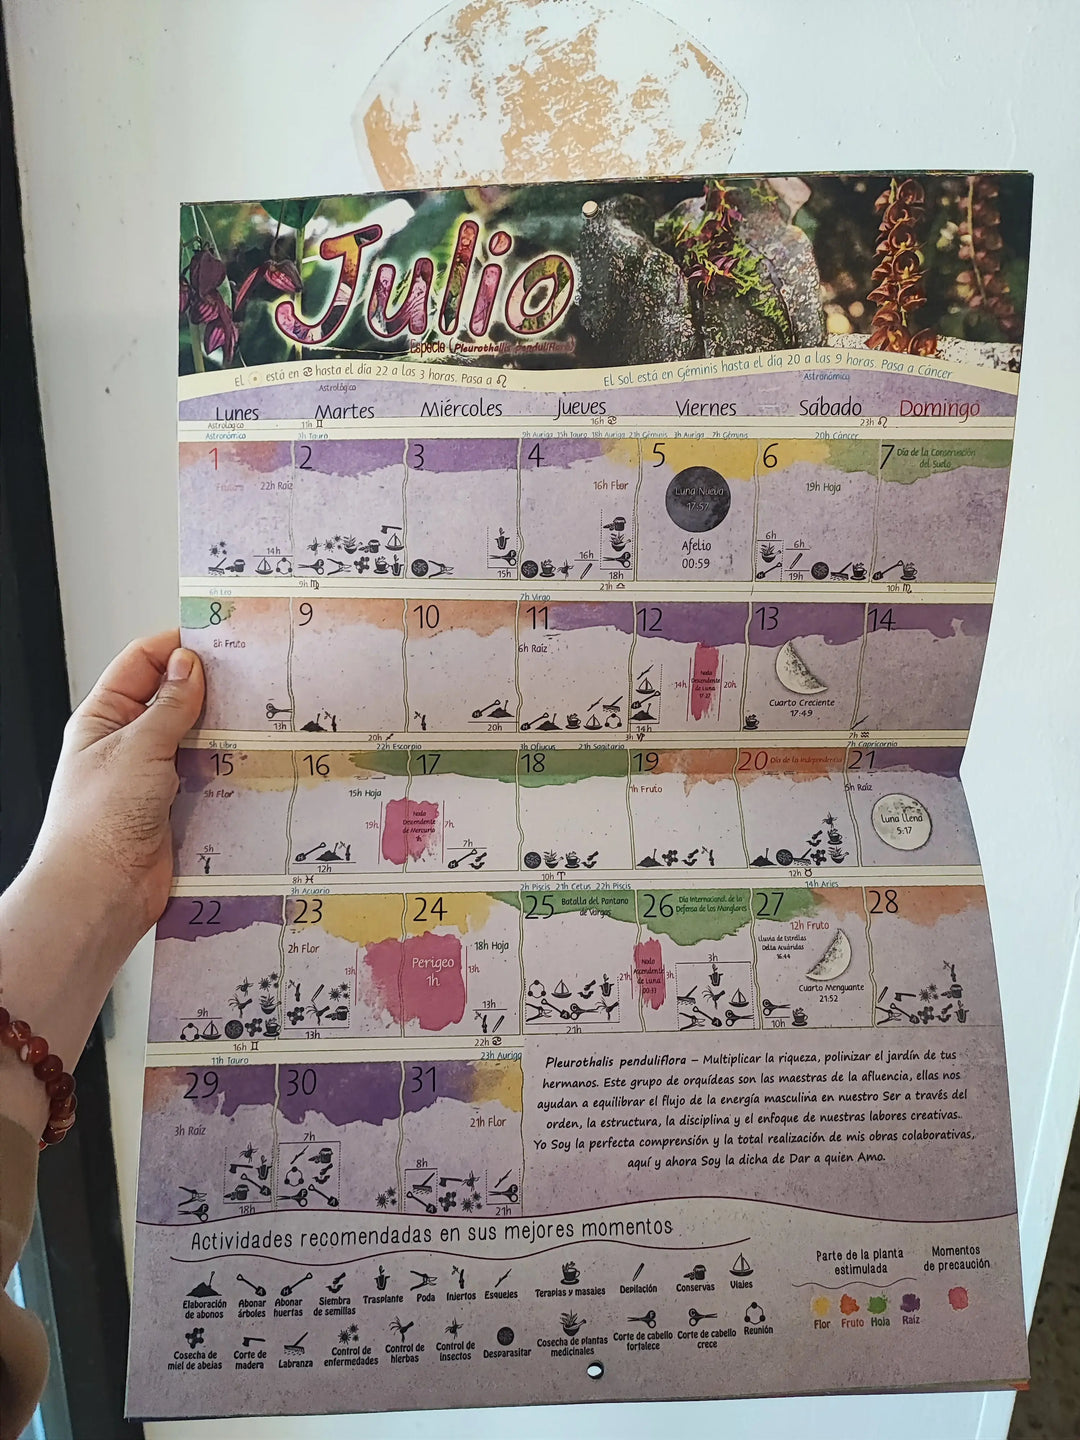 Julio
Especie (Pleurothallis penduliflora)
El ☉ está en ♋ hasta el día 22 a las 3 horas. Pasa a ♌
Astrológico
El Sol está en Géminis hasta el día 20 a las 9 horas. Pasa a Cáncer
Astronómico
Lunes Martes Miércoles Jueves Viernes Sábado Domingo
Astrológico 11h ♊ 16h ♋ 23h ♌
Astronómico 3h Tauro 9h Auriga 15h Tauro 18h Auriga 21h Géminis 3h Auriga 7h Géminis 20h Cáncer
1 2 3 4 5 6 7 Día de la Conservación
del Suelo
22h Raíz 16h Flor Luna Nueva 19h Hoja
17:57
Afelio
00:59
14h 15h 16h 18h 6h 6h 19h
9h ♍ 21h ♎ 10h ♏
6h Leo 7h Virgo
8 9 10 11 12 13 14
8h Fruto 6h Raíz
14h Nodo Descendente de Luna 20h
Cuarto Creciente
17:49
13h 20h 14h
20h ♐ 3h ♑ 7h ♒
5h Libra 22h Escorpio 3h Ofiucus 21h Sagitario 7h Capricornio
15 16 17 18 19 20 Día de la Independencia 21
5h Flor 15h Hoja 1h Fruto 5h Raíz
19h Nodo Descendente de Mercurio 1h 7h
Luna Llena
5:17
5h 12h 7h
8h ♓ 10h ♈ 12h ♉
3h Acuario 2h Piscis 21h Cetus 22h Piscis 14h Aries
22 23 24 25 Batalla del Pantano
de Vargas
26 Día Internacional de la
Defensa de los Manglares
27 28
2h Flor 18h Hoja 12h Fruto
13h Perigeo 13h
1h
21h Nodo Ascendente de Luna 00:33 3h
Lluvia de Estrellas
Delta Acuáridas
16:44
Cuarto Menguante
21:52
9h 13h 13h 21h 3h 10h
16h ♊ 22h ♋
11h Tauro 23h Auriga
29 30 31
3h Raíz 21h Flor
18h 7h 8h 21h
Pleurothallis penduliflora – Multiplicar la riqueza, polinizar el jardín de tus
hermanos. Este grupo de orquídeas son las maestras de la afluencia, ellas nos
ayudan a equilibrar el flujo de la energía masculina en nuestro Ser a través del
orden, la estructura, la disciplina y el enfoque de nuestras labores creativas..
Yo Soy la perfecta comprensión y la total realización de mis obras colaborativas,
aquí y ahora Soy la dicha de Dar a quien Amo.
Actividades recomendadas en sus mejores momentos
Elaboración
de abonos
Abonar
árboles
Abonar
huertas
Siembra
de semillas
Trasplante
Poda
Injertos
Esquejes
Terapias y masajes
Depilación
Conservas
Viajes
Cosecha de
miel de abejas
Corte de
madera
Labranza
Control de
enfermedades
Control de
hierbas
Control de
insectos
Desparasitar
Cosecha de plantas
medicinales
Corte de cabello
fortalece
Corte de cabello
crece
Reunión
Parte de la planta
estimulada
Flor Fruto Hoja Raíz
Momentos
de precaución